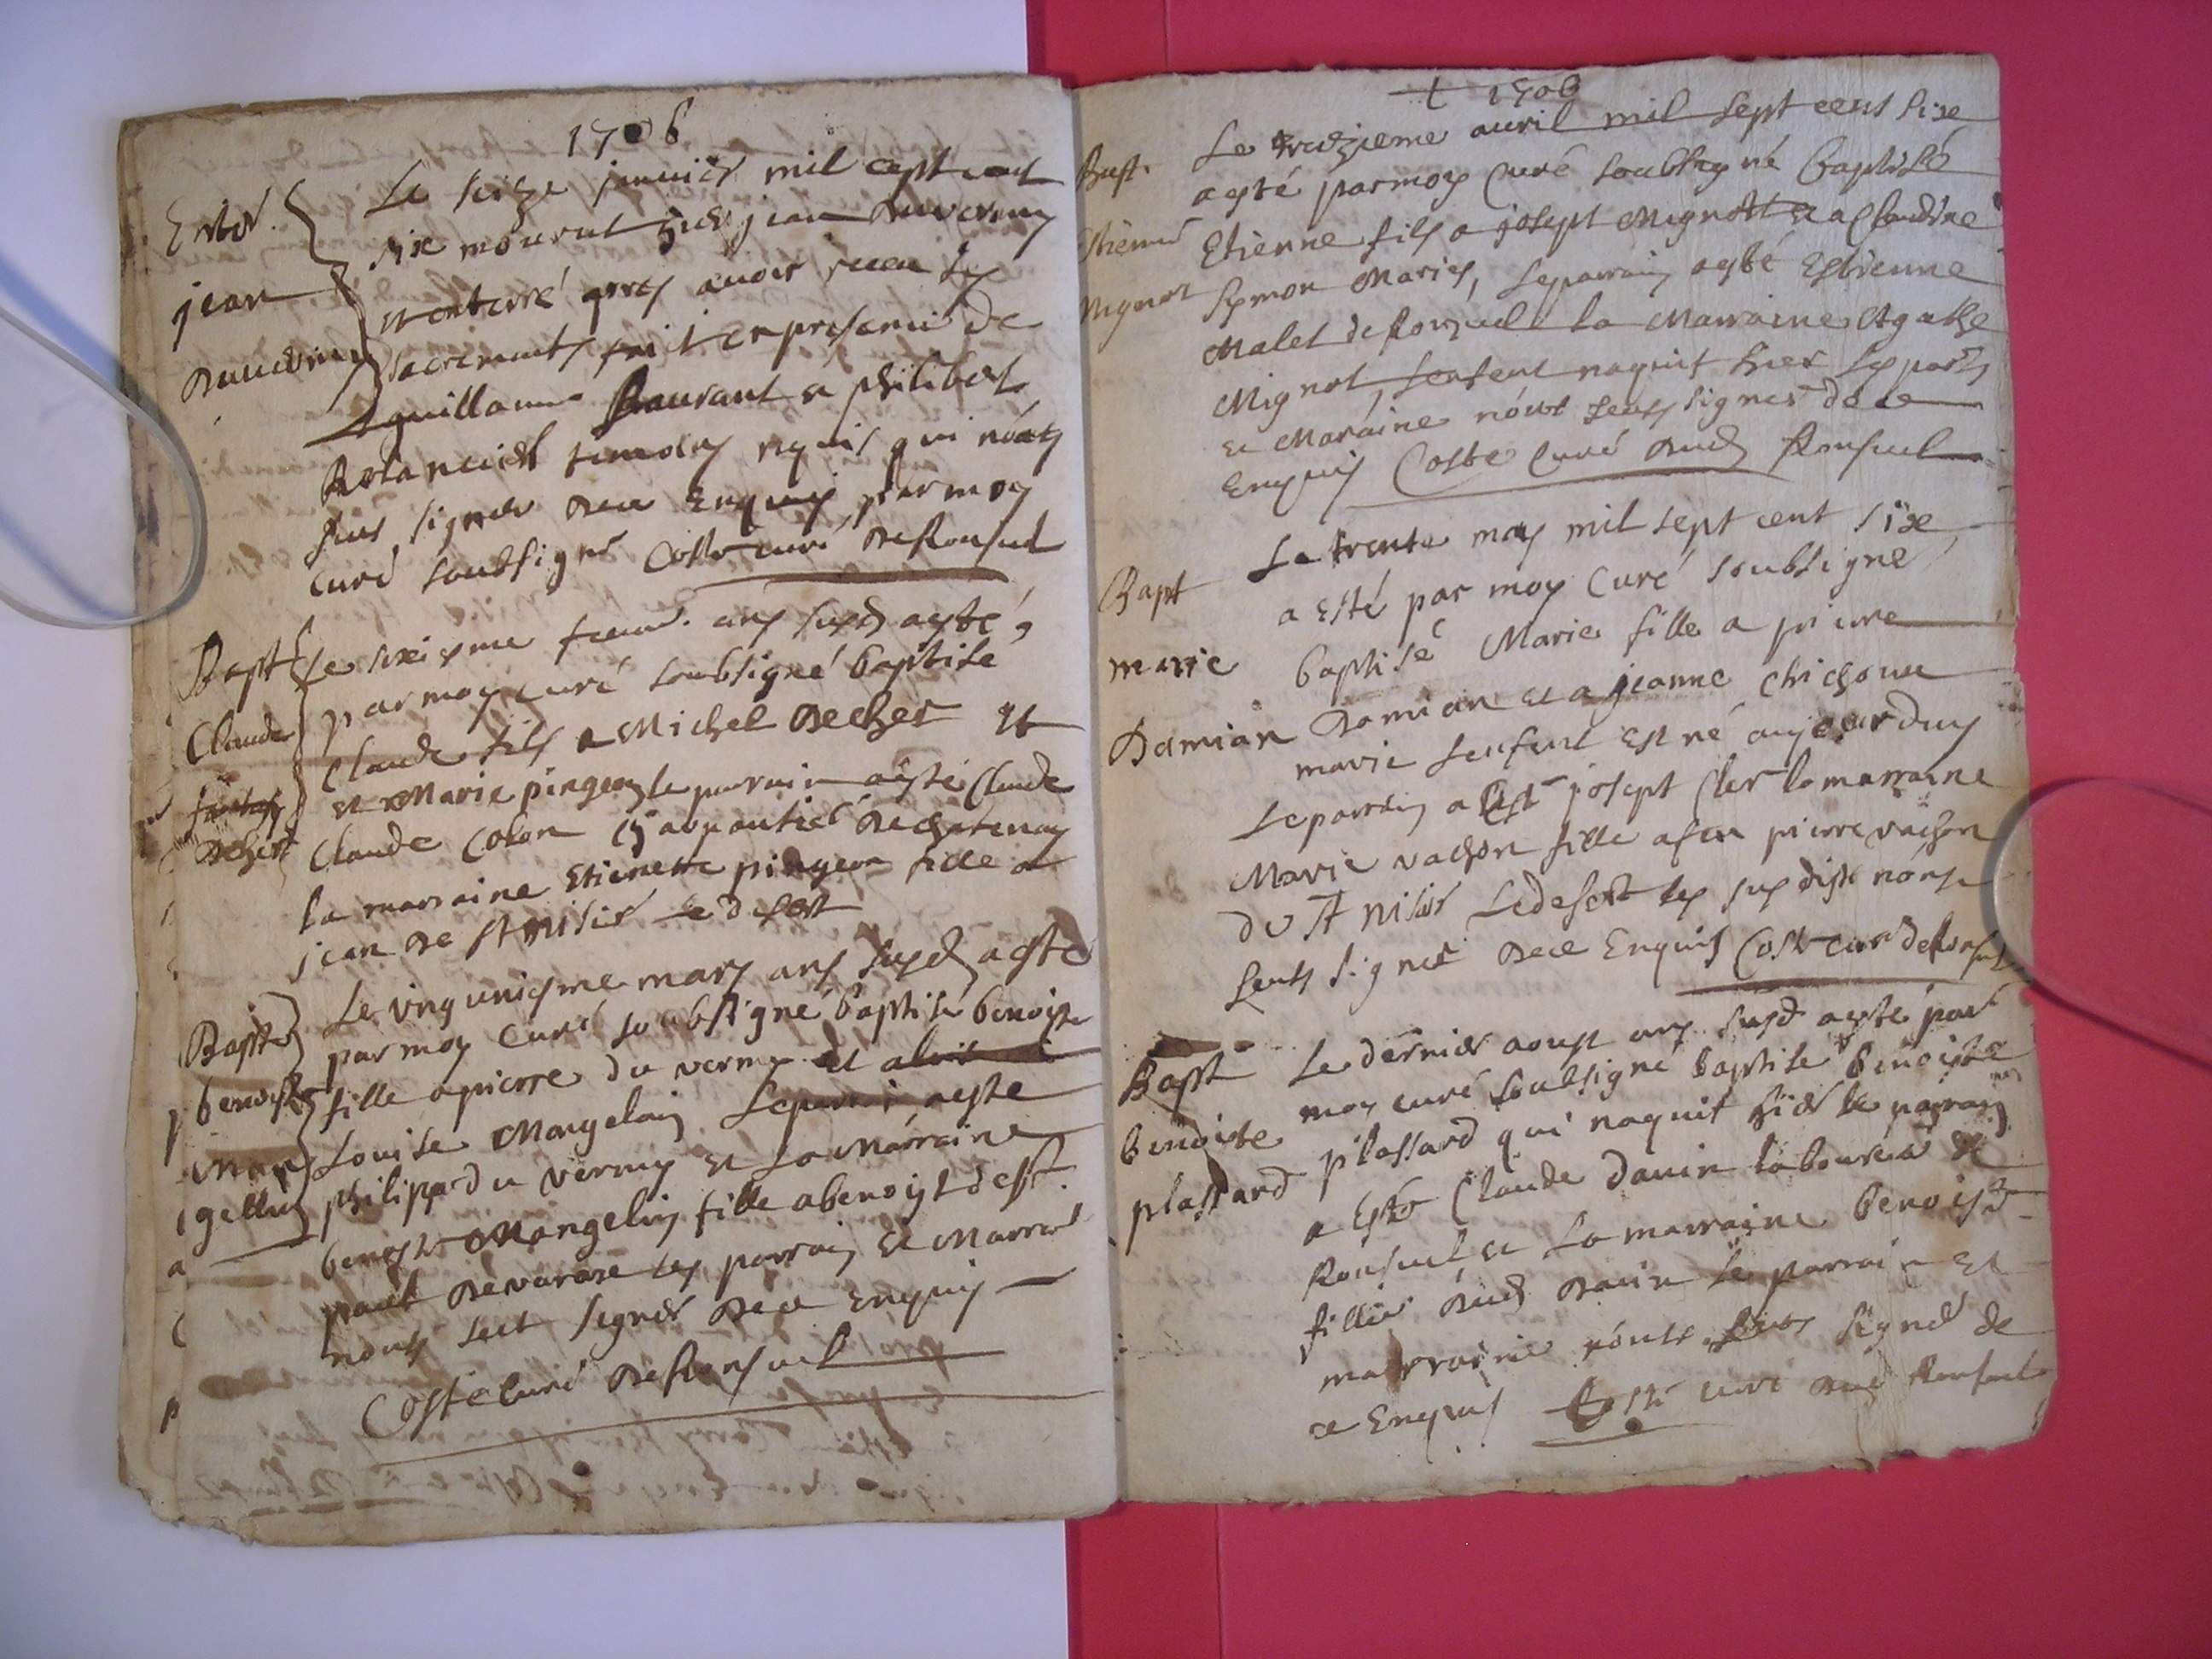 1706
Enter.
jean
Duverney
Le seize janvier mil cept cent
six mourut hier jean Duverney
et enterré apres avoir receu les
sacrements fait en presence de
guillaume Baurant et philibert
temoins requis qui n'onts
sceu signer de ce Enquis par moy
curé soubsigné Coste curé de Ronsuel
Bapt
Claude
Decher
Le sixiesme ans susd aesté
par moy curé soubsigné baptisé
Claude fils a Michel Decher et
et a Marie pingeon le parrain aesté Claude
Claude Colon charpantier de chatenay
la marraine Etienette pingeon fille a
jean de st nisier le desert
Bapt
benoiste
Man
gellin
Le vingt uniesme mars ans susd aesté
par moy curé soubsigné baptisé benoiste
fille a pierre du verney et
Louise Mangelin Le parrain aeste
philippe du verney et La Marraine
benoiste Mangelin fille a benoist de st
paul de varax les parrain et Marraine
nonts sceut signer de ce enquis
Coste curé de Ronsuel
1706
Bapt.
Etienne
Mignot
Le treizieme avril mil sept cent sixe
aesté par moy Curé soubsigné baptisé
Etienne fils a josept Mignot et a Claudine
Symon Maries, le parrain aesté Estienne
Malet de Ronzuel la Marraine Agathe
Mignot, lenfent naquit hier les parrain
et Maraine nont seuts signer de ce
Enquis Coste Curé dud Ronsuel
Bapt
marie
Damian
Le trente may mil sept cent sixe
a Esté par moy Curé soubsigné
baptisé Marie fille a pierre
Damian et a jeanne chichoux
marie lenfent est né aujourduy
Le parrain a Esté josept Cler la marraine
Marie vachon fille a feu pierre vachon
de st nisier Le desert les susdits nonts
seuts signer de ce Enquis Coste curé de Ronsuel
Bapt
benoiste
plassard
Le dernier aoust ans susd aesté par
moy curé soubsigné baptisé benoiste
plassard qui naquit hier le parrain
a Esté Claude Danin laboureur de
Ronsuel, et La marraine benoiste
fillie dud Danin le parrain et
marraine nonts seuts signer de
ce Enquis Coste curé dud Ronsuel